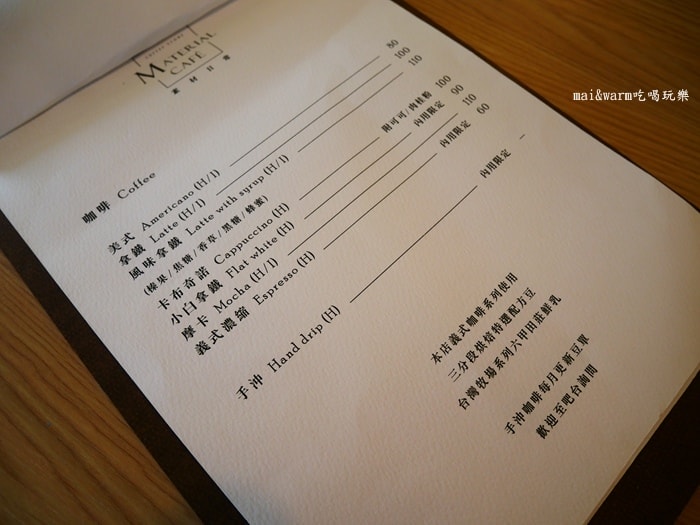 MATERIAL
CAFÉ
素材日常
咖啡 Coffee
美式 Americano (H/I) 80
拿鐵 Latte (H/I) 100
風味拿鐵 Latte with syrup (H/I) 110
(榛果/焦糖/香草/黑糖/蜂蜜)
卡布奇諾 Cappuccino (H) 附可可/肉桂粉 100
小白拿鐵 Flat white (H) 內用限定 90
摩卡 Mocha (H/I) 110
義式濃縮 Espresso (H) 內用限定 60
手沖 Hand drip (H) 內用限定 –
本店義式咖啡系列使用
三分段烘焙特選配方豆
台灣牧場系列六甲田莊鮮乳
手沖咖啡每月更新豆單
歡迎至吧台詢問
mai&warm吃喝玩樂